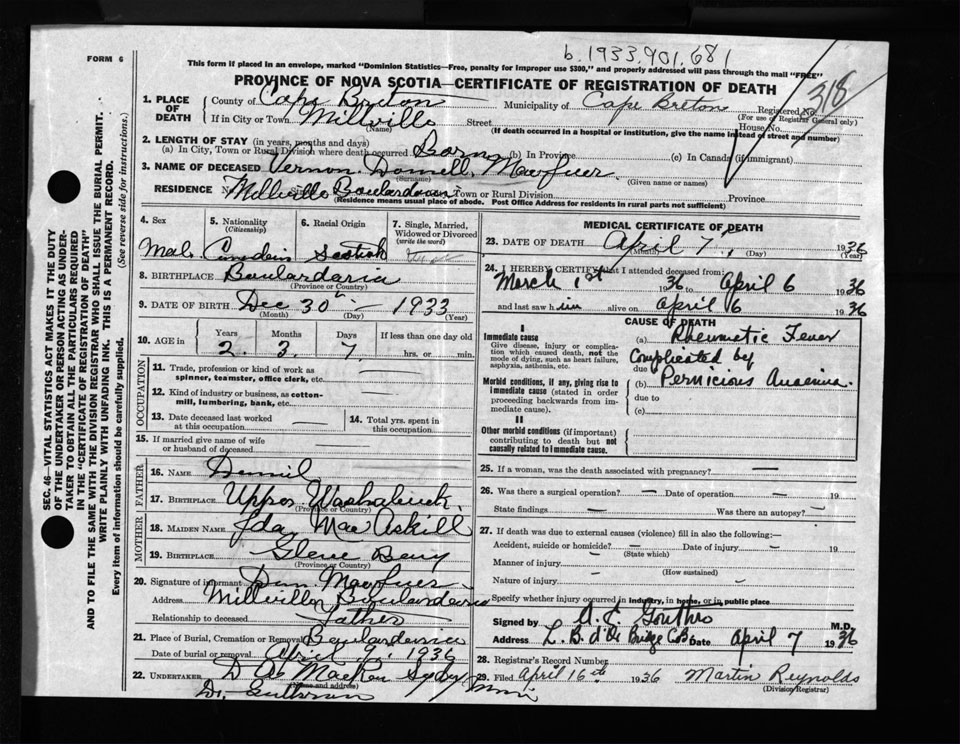 b. 1933.901.681
FORM 6
This form if placed in an envelope, marked "Dominion Statistics—Free, penalty for improper use $300," and properly addressed will pass through the mail "FREE"
PROVINCE OF NOVA SCOTIA—CERTIFICATE OF REGISTRATION OF DEATH
318
SEC. 46—VITAL STATISTICS ACT MAKES IT THE DUTY
OF THE UNDERTAKER OR PERSON ACTING AS UNDER-
TAKER TO OBTAIN ALL THE PARTICULARS REQUIRED
IN THE "CERTIFICATE OF REGISTRATION OF DEATH"
AND TO FILE THE SAME WITH THE DIVISION REGISTRAR WHO SHALL ISSUE THE BURIAL PERMIT.
WRITE PLAINLY WITH UNFADING INK. THIS IS A PERMANENT RECORD.
Every item of information should be carefully supplied. (See reverse side for instructions.)
1. PLACE OF DEATH County of Cape Breton Municipality of Cape Breton Registered No.
(For use of Registrar General only)
If in City or Town Millville Street House No.
(Name) (If death occurred in a hospital or institution, give the name instead of street and number)
2. LENGTH OF STAY (in years, months and days)
(a) In City, Town or Rural Division where death occurred Born (b) In Province (c) In Canada (if immigrant)
3. NAME OF DECEASED Vernon
(Surname) (Given name or names)
RESIDENCE Millville Town or Rural Division Province
(Residence means usual place of abode. Post Office Address for residents in rural parts not sufficient)
4. Sex 5. Nationality (Citizenship) 6. Racial Origin 7. Single, Married, Widowed or Divorced (write the word)
8. BIRTHPLACE
(Province or Country)
9. DATE OF BIRTH Dec 30 1933
(Month) (Day) (Year)
10. AGE in Years Months Days If less than one day old
2 3 7 hrs. or min.
OCCUPATION
11. Trade, profession or kind of work as spinner, teamster, office clerk, etc.
12. Kind of industry or business, as cotton-mill, lumbering, bank, etc.
13. Date deceased last worked at this occupation
14. Total yrs. spent in this occupation
15. If married give name of wife or husband of deceased
FATHER
16. NAME
17. BIRTHPLACE Upper Washabuck
(Province or Country)
MOTHER
18. MAIDEN NAME Ida MacAskill
19. BIRTHPLACE
(Province or Country)
20. Signature of informant
Address Millville
Relationship to deceased father
21. Place of Burial, Cremation or Removal
Date of burial or removal April 9, 1936
22. UNDERTAKER Sydney Mines
(Name and address)
MEDICAL CERTIFICATE OF DEATH
23. DATE OF DEATH April 7, 1936
(Month) (Day) (Year)
24. I HEREBY CERTIFY that I attended deceased from:
March 1st 1936 to April 6 1936
and last saw him alive on April 6 1936
CAUSE OF DEATH
I
Immediate cause
Give disease, injury or complication which caused death, not the mode of dying, such as heart failure, asphyxia, asthenia, etc.
(a) Rheumatic Fever
Complicated by
due to
Morbid conditions, if any, giving rise to immediate cause (stated in order proceeding backwards from immediate cause).
(b) Pernicious Anaemia.
due to
(c)
II
Other morbid conditions (if important) contributing to death but not causally related to immediate cause.
25. If a woman, was the death associated with pregnancy? —
26. Was there a surgical operation? — Date of operation — 19
State findings — Was there an autopsy? —
27. If death was due to external causes (violence) fill in also the following:—
Accident, suicide or homicide? — Date of injury — 19
(State which)
Manner of injury —
(How sustained)
Nature of injury —
Specify whether injury occurred in industry, in home, or in public place
Signed by M.D.
Address Date April 7 1936
28. Registrar's Record Number
29. Filed April 16th 1936 Martin Reynolds
(Division Registrar)